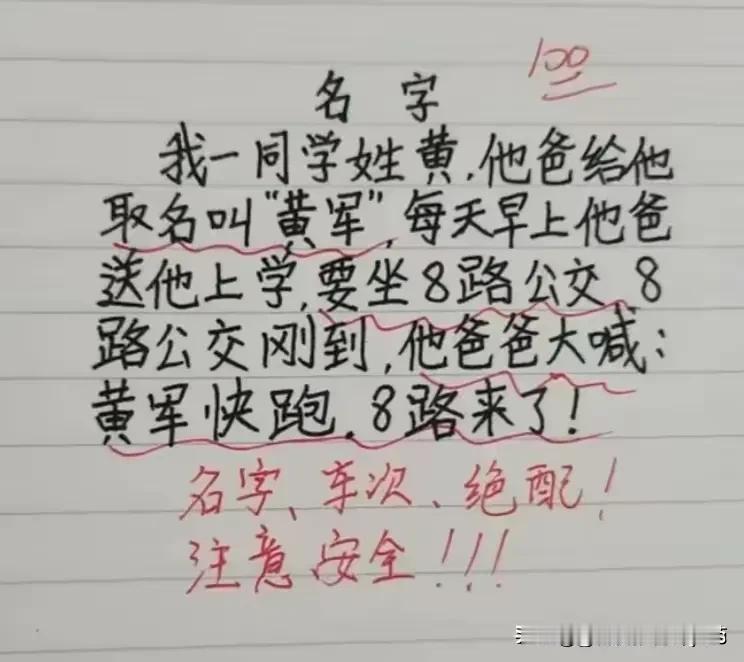 100
名字
我一同学姓黄,他爸给他
取名叫“黄军”,每天早上他爸
送他上学,要坐8路公交,8
路公交刚到,他爸爸大喊:
黄军快跑,8路来了!
名字、车次、绝配!
注意安全!!!